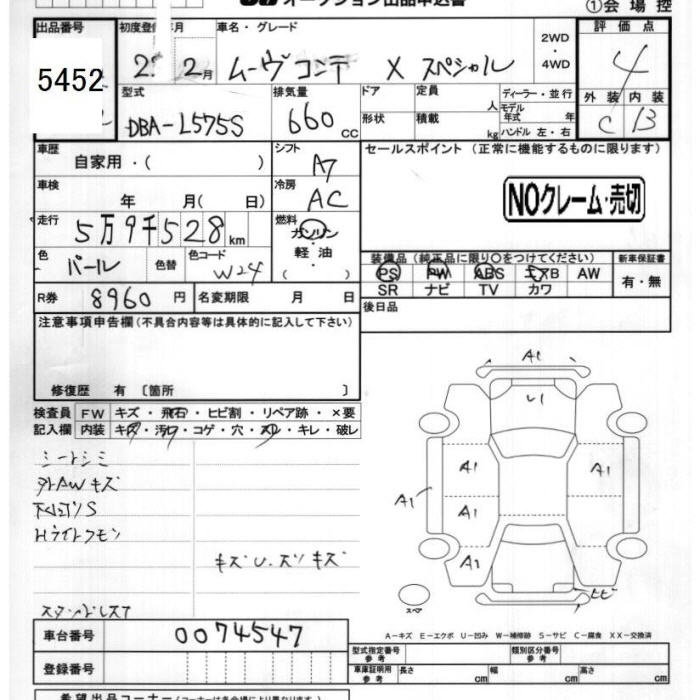 オークション出品申込書 ①会場控
出品番号 初度登録年月 車名・グレード 2WD・4WD 評価点
5452 2. 2月 ムーヴコンテ X スペシャル 4
型式 排気量 ドア 定員 人 ディーラー・並行 外装 内装
DBA-L575S 660cc 形状 積載 kg モデル年式 年 ハンドル 左・右 C B
車歴 自家用・( ) シフト A7 セールスポイント (正常に機能するものに限ります)
車検 年 月( 日) 冷房 AC NOクレーム・売切
走行 5万9千528km 燃料 ガソリン・軽油・( )
色 パール 色替 色コード W24 装備品 (純正品に限り○をつけてください) 新車保証書
PS PW ABS エアB AW 有・無
R券 8960円 名変期限 月 日 SR ナビ TV カワ
注意事項申告欄(不具合内容等は具体的に記入して下さい) 後日品
修復歴 有 〔箇所 〕
検査員 FW キズ・飛石・ヒビ割・リペア跡・×要
記入欄 内装 キズ・汚れ・コゲ・穴・スレ・キレ・破レ
シートシミ
外AWキズ
Hライトクモリ
キズU.ズリキズ
A1
U1
A1 A1
A1
A1
A1
ヒビ
スペア
車台番号 0074547
A-キズ E-エクボ U-凹み W-補修跡 S-サビ C-腐食 XX-交換済
型式指定番号 参考 類別区分番号 参考
登録番号 車庫証明用 参考 長さ cm 幅 cm 高さ cm
希望出品コーナー